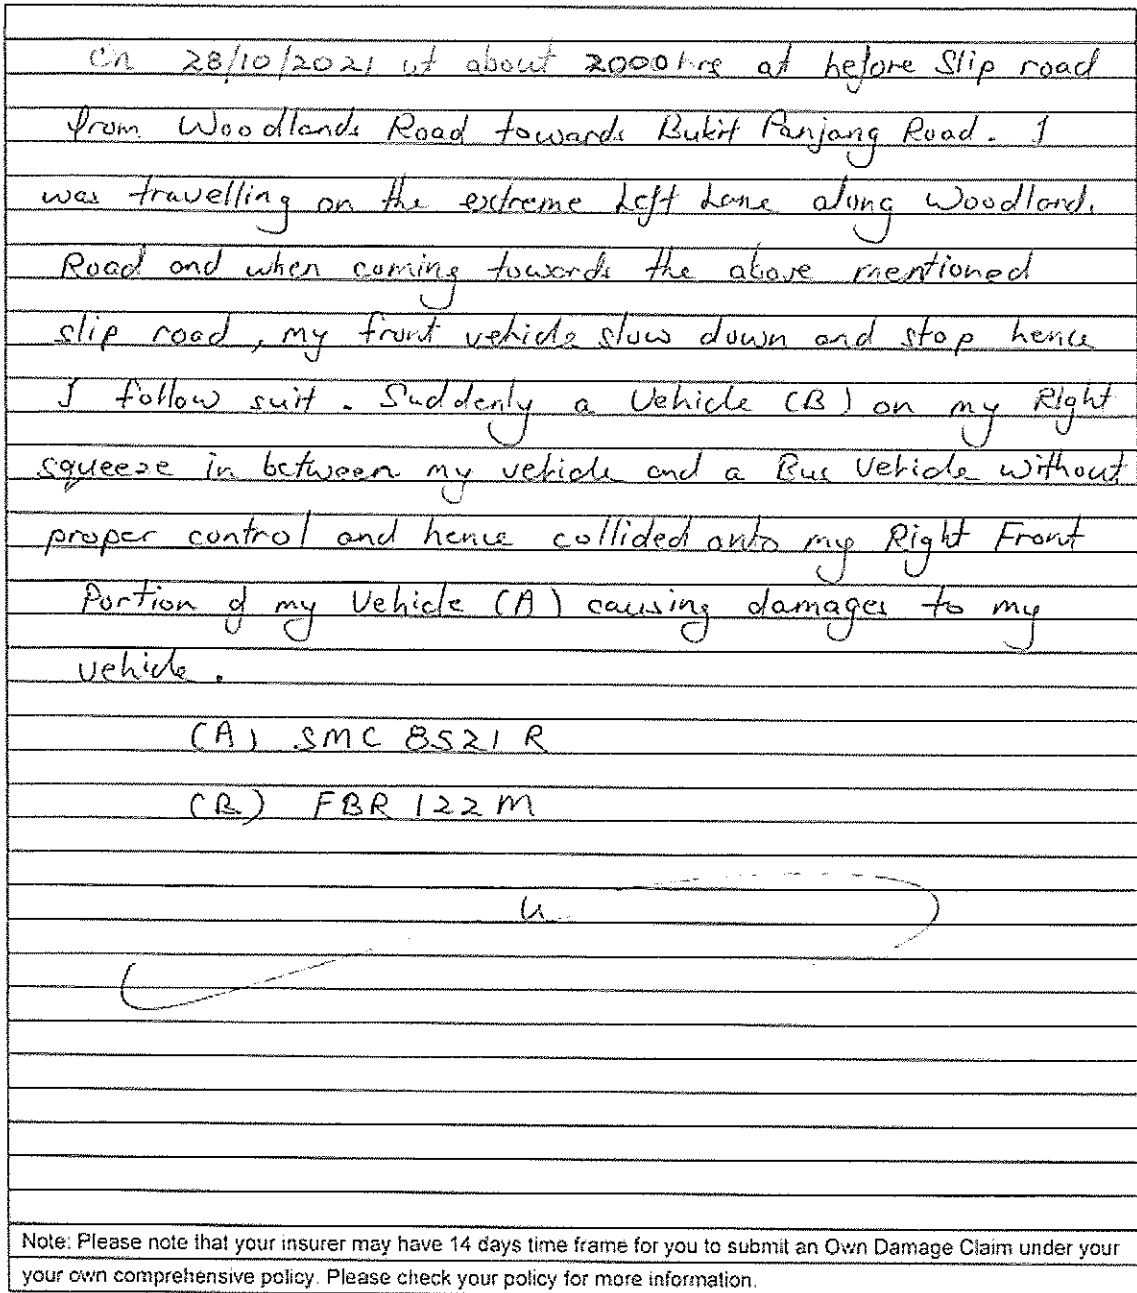 On 28/10/2021 at about 2000hrs at before Slip road
from Woodlands Road towards Bukit Panjang Road. I
was travelling on the extreme Left Lane along Woodlands
Road and when coming towards the above mentioned
slip road, my front vehicle slow down and stop hence
I follow suit. Suddenly a Vehicle (B) on my Right
squeeze in between my vehicle and a Bus Vehicle without
proper control and hence collided onto my Right Front
Portion of my Vehicle (A) causing damages to my
vehicle.
(A) SMC 8521 R
(B) FBR 122 M
Note: Please note that your insurer may have 14 days time frame for you to submit an Own Damage Claim under your
your own comprehensive policy. Please check your policy for more information.